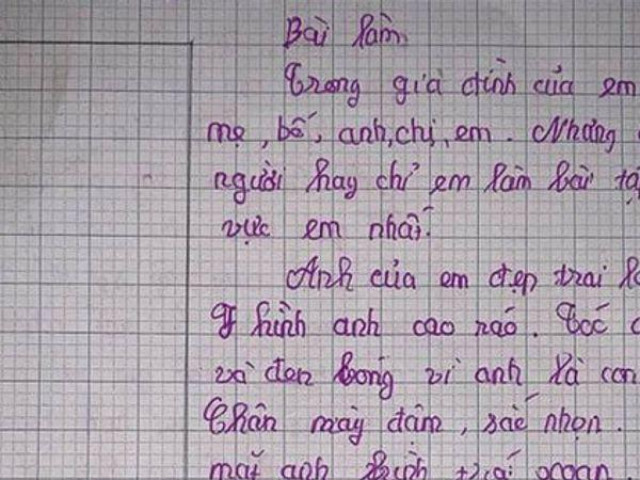 Bài làm
Trong gia đình của em
mẹ, bố, anh, chị, em. Nhưng
người hay chỉ em làm bài
vực em nhất.
Anh của em đẹp trai
hình anh cao ráo. Tóc
và đen bóng vì anh là con
Chân mày đậm, sắc nhọn.
mặt anh hình trái xoan.